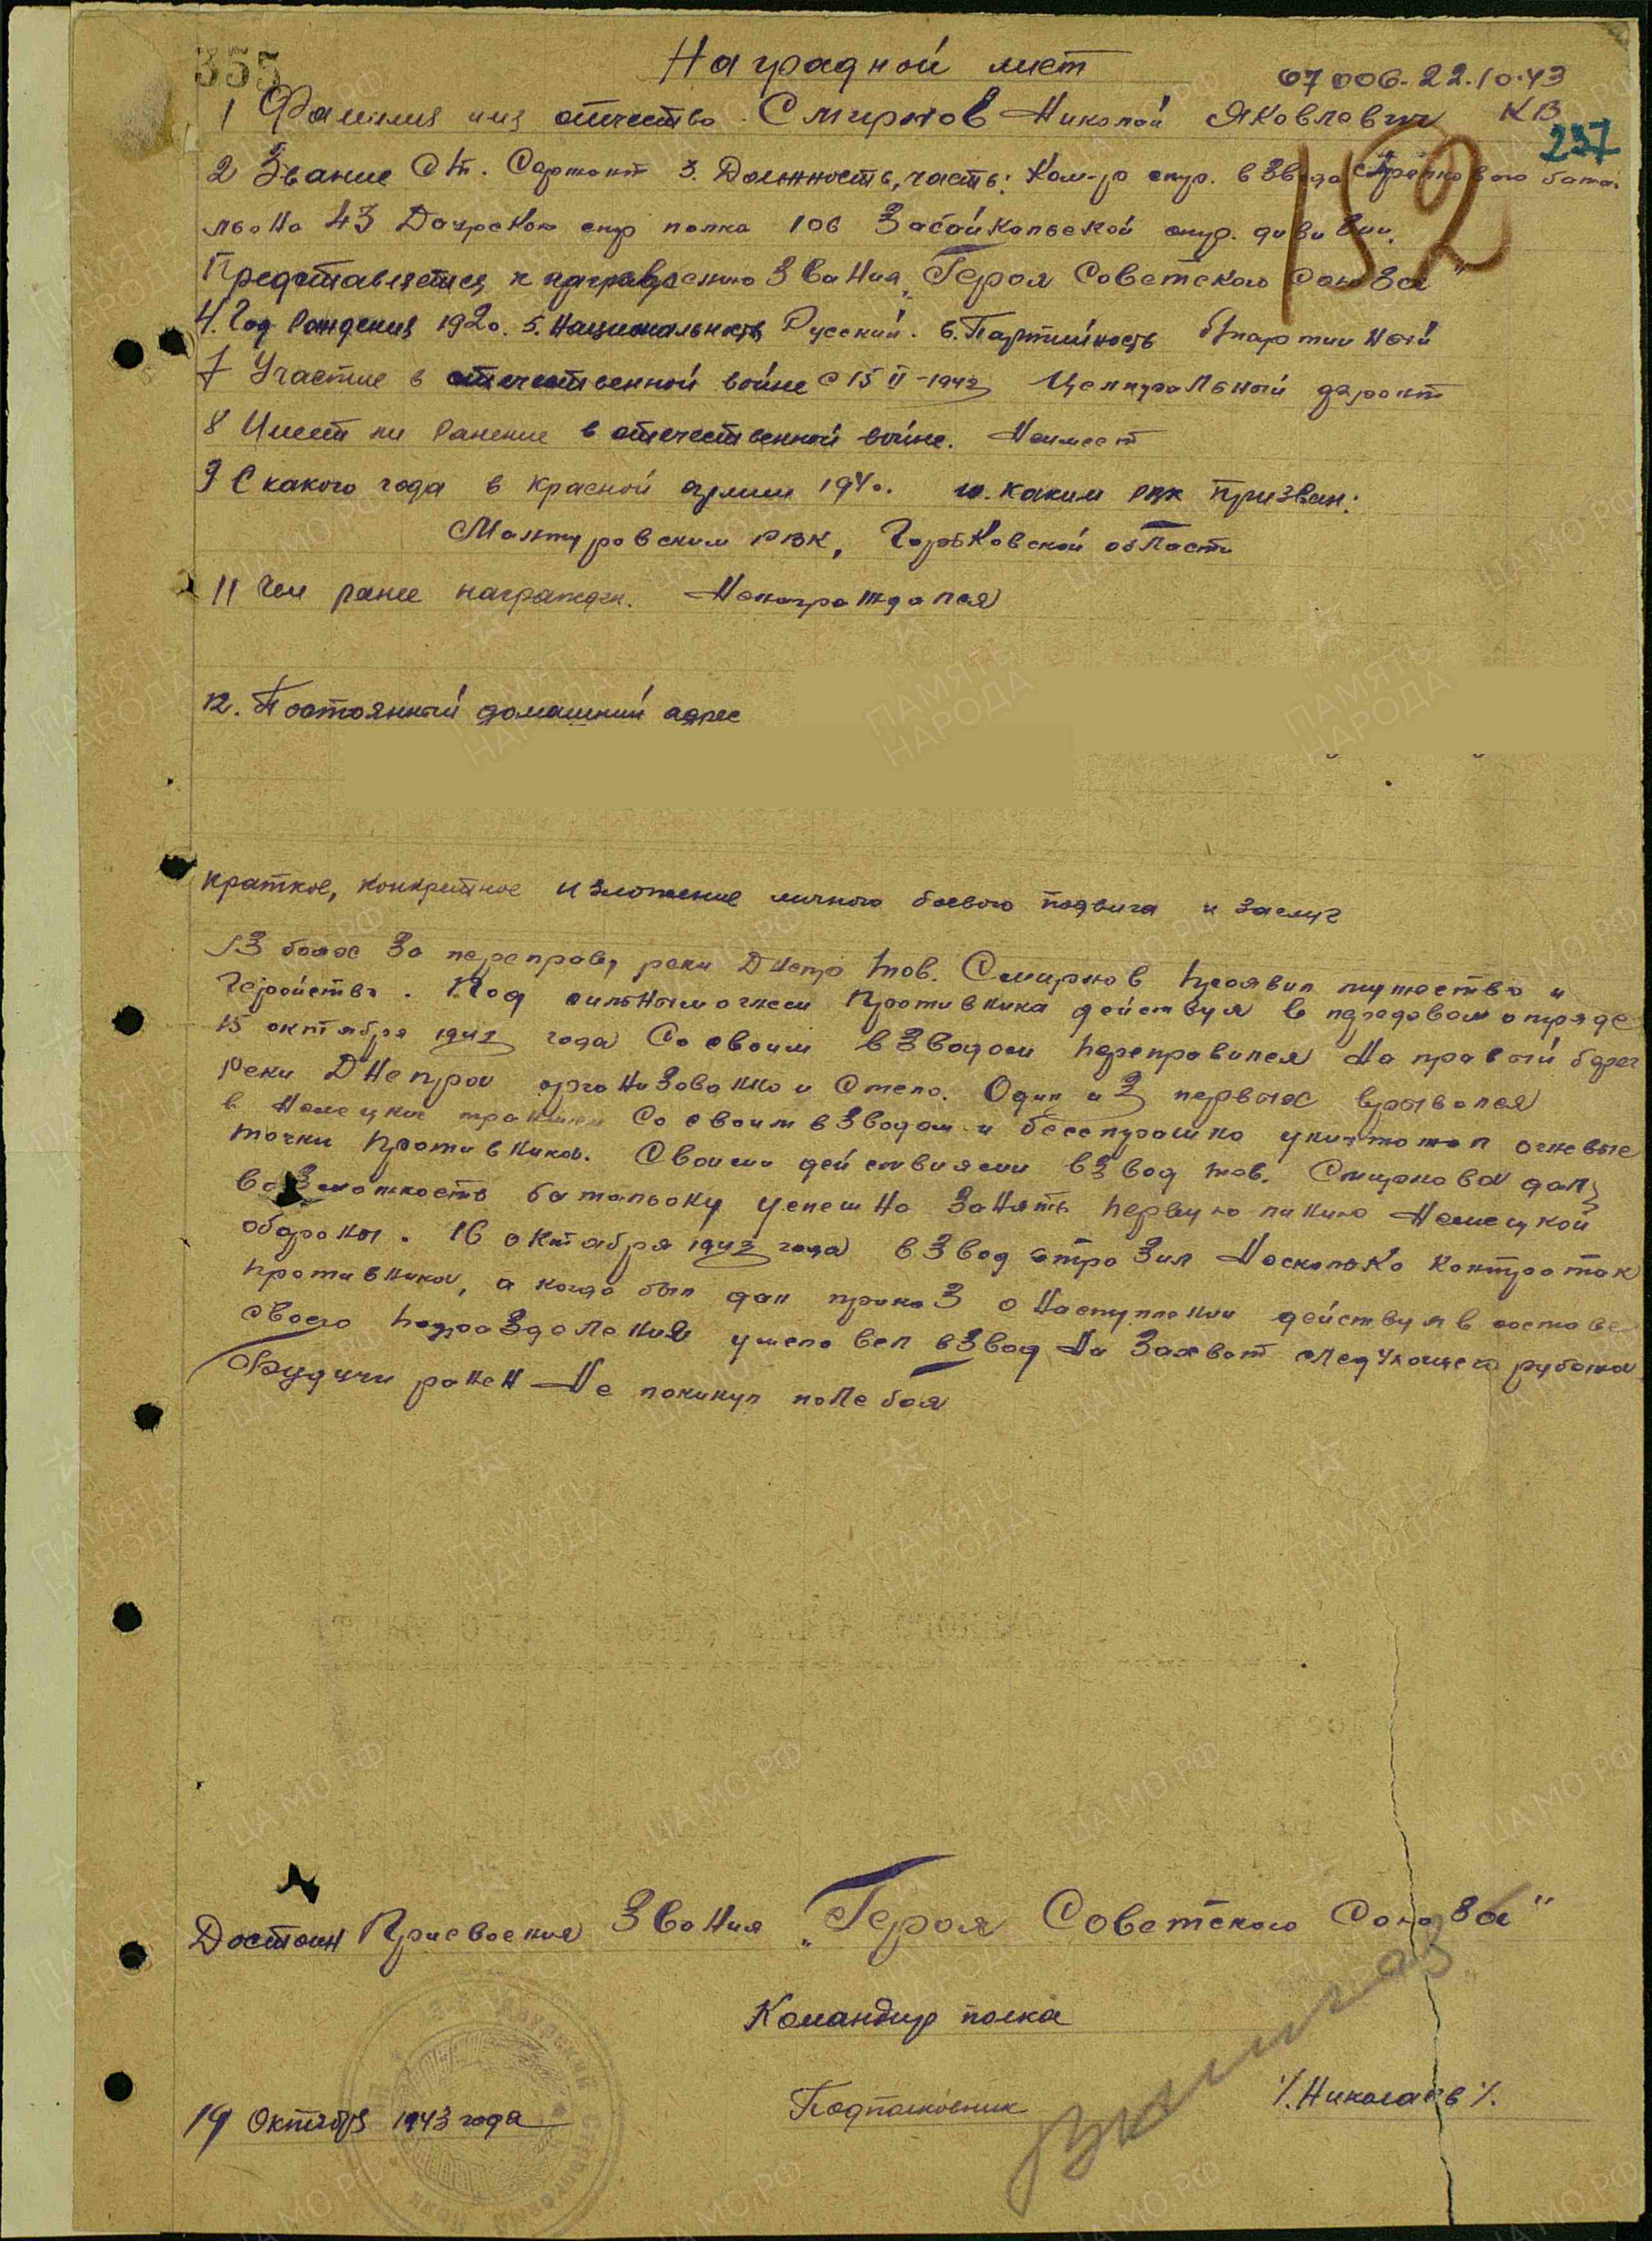 355
Наградной лист
07006. 22.10.43
1 Фамилия имя отчество Смирнов Николай Яковлевич КВ
237
152
2 Звание Ст. Сержант 3. Должность, часть: Ком-р стр. взвода стрелкового баталь
льона 43 Даурского стр полка 106 Забайкальской стр. дивизии.
Представляется к присвоению Звания „Героя Советского Союза"
4. Год Рождения 1920. 5. Национальность Русский. 6. Партийность б/партийный
7 Участие в отечественной войне с 15 II-1943 Центральный фронт
8 Имеет ли Ранение в отечественной войне. Неимеет
9 С какого года в Красной армии 1940. 10. каким рвк призван:
Мантуровским РВК, Горьковской области
11 Чем ранее награжден. Ненаграждался
12. Постоянный домашний адрес
краткое, конкретное изложение личного боевого подвига и заслуг
В боях за переправу реки Днепр тов. Смирнов проявил мужество и
геройство. Под сильным огнем противника действуя в передовом отряде
15 октября 1943 года Со своим взводом переправился на правый берег
реки Днепра организованно и смело. Один из первых врывался
в немецкие траншеи со своим взводом и бесстрашно уничтожал огневые
точки противника. Своими действиями взвод тов. Смирнова дал
возможность батальону успешно занять первую линию немецкой
обороны. 16 октября 1943 года взвод отразил несколько контратак
противника, а когда был дан приказ о наступлении действуя в составе
своего подразделения умело вел взвод на захват следующего рубежа
Будучи ранен не покинул поле боя
Достоин Присвоения Звания „Героя Советского Союза"
Командир полка
Подполковник /.Николаев/.
19 Октября 1943 года
ПАМЯТЬ НАРОДА
ЦАМО РФ